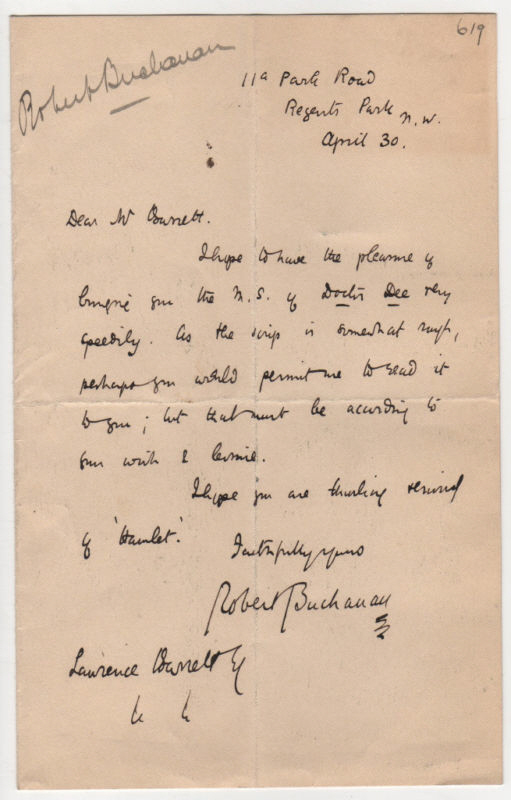 619
Robert Buchanan
11a Park Road
Regents Park N.W.
April 30.
Dear Mr Barrett.
I hope to have the pleasure of
bringing you the M.S. of Doctor Dee very
speedily. As the script is somewhat rough,
perhaps you would permit me to read it
to you; but that must be according to
your wish & leisure.
I hope you are thinking seriously
of 'Hamlet'.
Faithfully yours
Robert Buchanan
Lawrence Barrett Esq